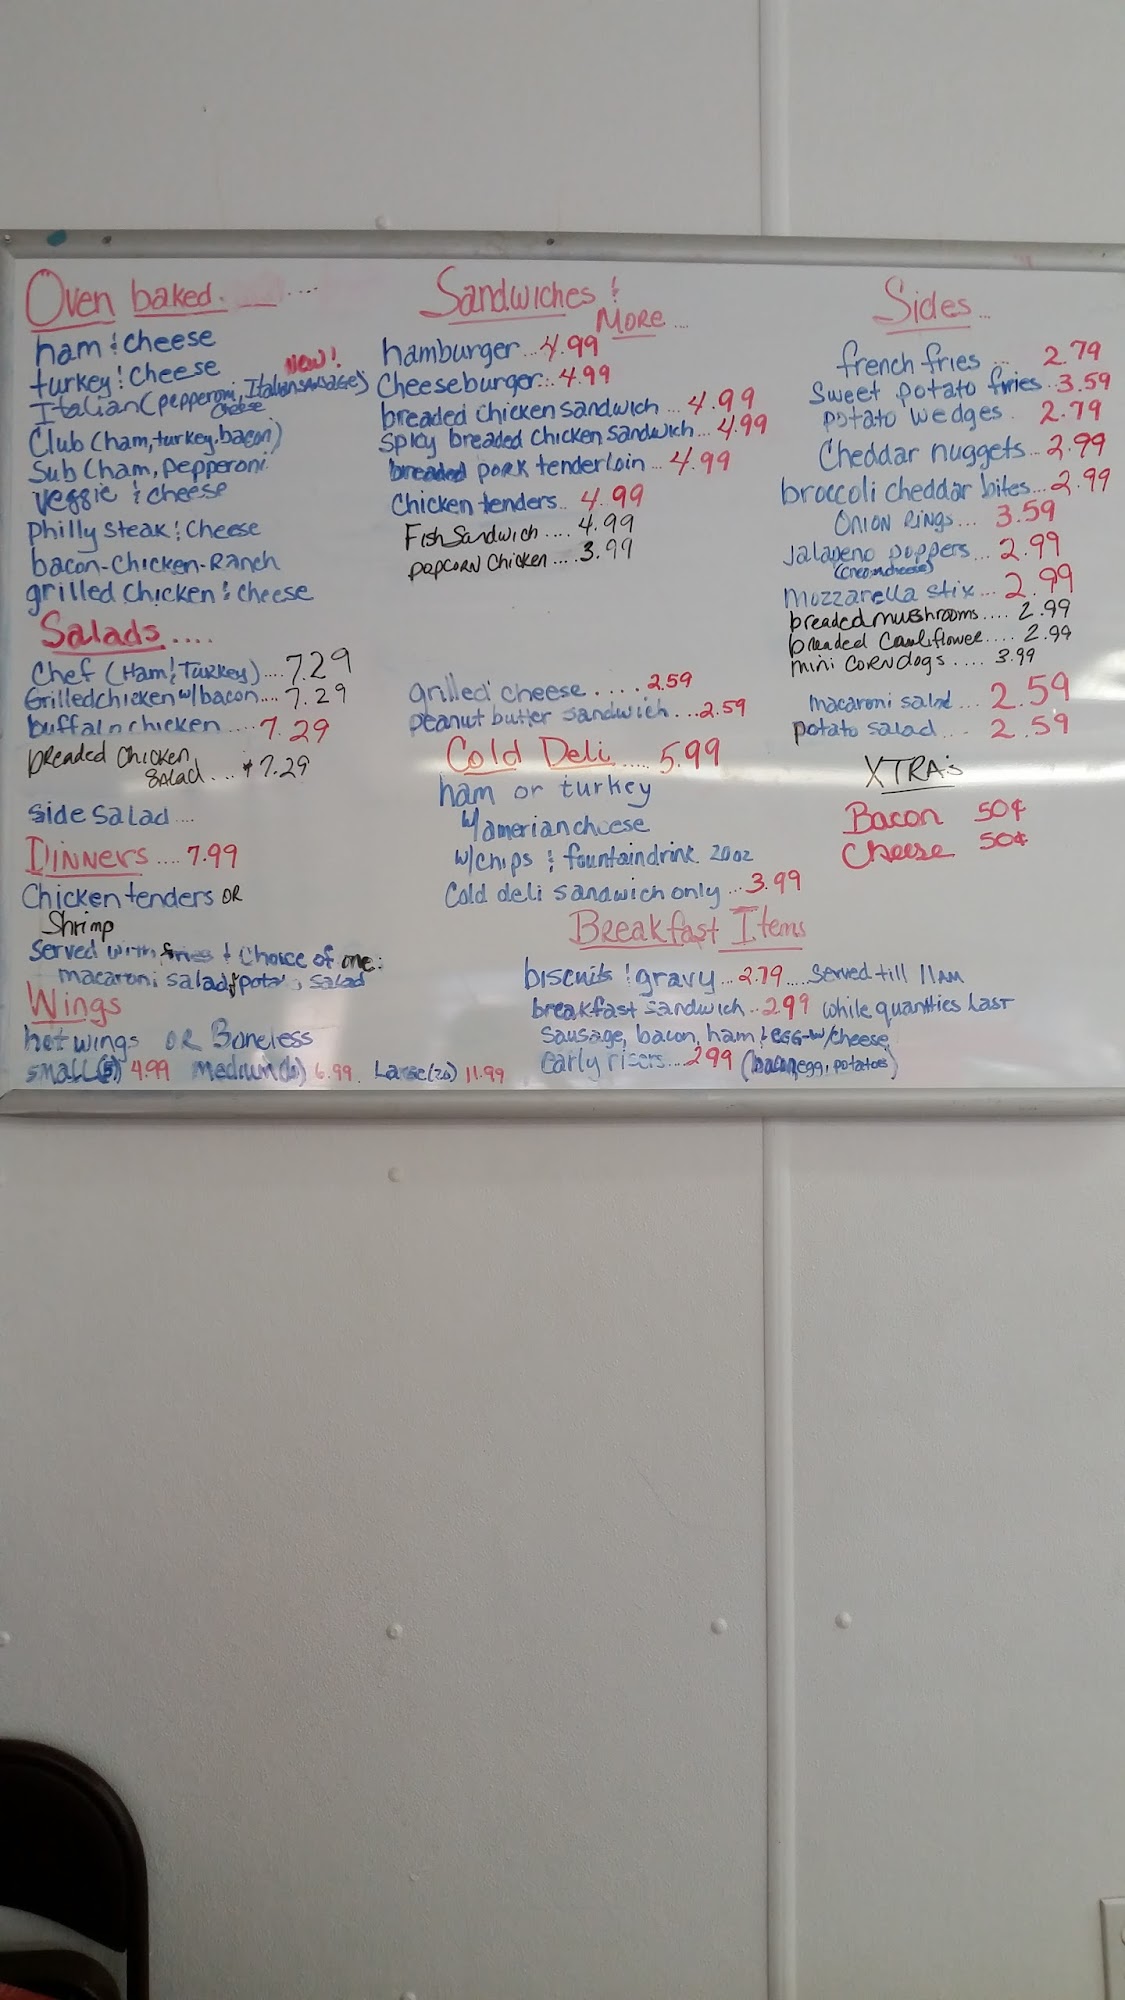 Oven baked. ....
ham & cheese
turkey & cheese
New!
Italian (pepperoni, Italian sausage)
cheese
Club (ham, turkey, bacon)
Sub (ham, pepperoni
veggie & cheese
Philly steak & cheese
bacon-chicken-Ranch
grilled chicken & cheese
Salads ....
Chef (Ham & Turkey).... 7.29
Grilled chicken w/bacon.... 7.29
buffalo chicken .... 7.29
breaded chicken
salad... 7.29
side salad ....
Dinners .... 7.99
Chicken tenders OR
Shrimp
served with fries & choice of one:
macaroni salad, salad
Wings
hot wings OR Boneless
small(5) 4.99 medium(10) 6.99. Large(20) 11.99
Sandwiches &
More ...
hamburger... 4.99
Cheeseburger... 4.99
breaded chicken sandwich ... 4.99
spicy breaded chicken sandwich... 4.99
breaded pork tenderloin ... 4.99
Chicken tenders... 4.99
Fish Sandwich .... 4.99
popcorn chicken .... 3.99
grilled cheese ..... 2.59
peanut butter sandwich ...2.59
Cold Deli ..... 5.99
ham or turkey
w/amerian cheese
w/chips & fountain drink 20oz
Cold deli sandwich only ...3.99
Breakfast Items
biscuits & gravy ...2.79 .... served till 11AM
breakfast sandwich ..2.99 while quantties last
sausage, bacon, ham & EGG w/cheese
early risers....2.99 (bacon, egg, potatoes)
Sides ...
french fries ... 2.79
Sweet potato fries ..3.59
potato wedges . 2.79
Cheddar nuggets... 2.99
broccoli cheddar bites... 2.99
Onion Rings.... 3.59
Jalapeno poppers... 2.99
(creamcheese)
Mozzarella stix... 2.99
breaded mushrooms.... 2.99
breaded cauliflower.... 2.99
mini corndogs ..... 3.99
macaroni salad ... 2.59
potato salad ... 2.59
XTRA's
Bacon 50¢
Cheese 50¢